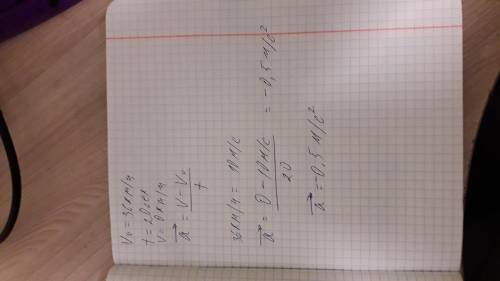 V₀ = 36 км/ч
t = 20 сек
V = 0 км/ч
a⃗ = (V - V₀) / t
36 км/ч = 10 м/с
a⃗ = (0 - 10 м/с) / 20 = -0,5 м/с²
a⃗ = -0,5 м/с²